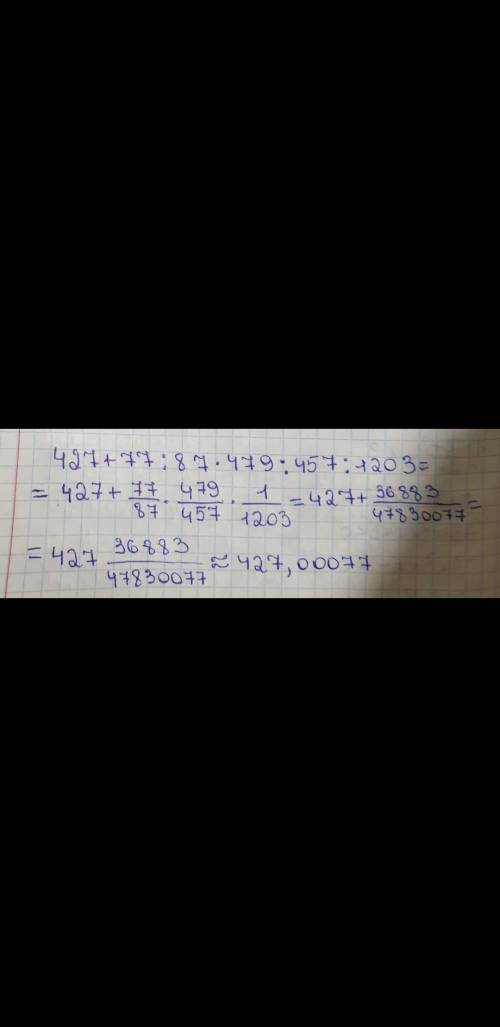 427+77:87·479:457:1203=
= 427+ 77/87 · 479/457 · 1/1203 = 427+ 36883/47830077 =
= 427 36883/47830077 ≈ 427,00077